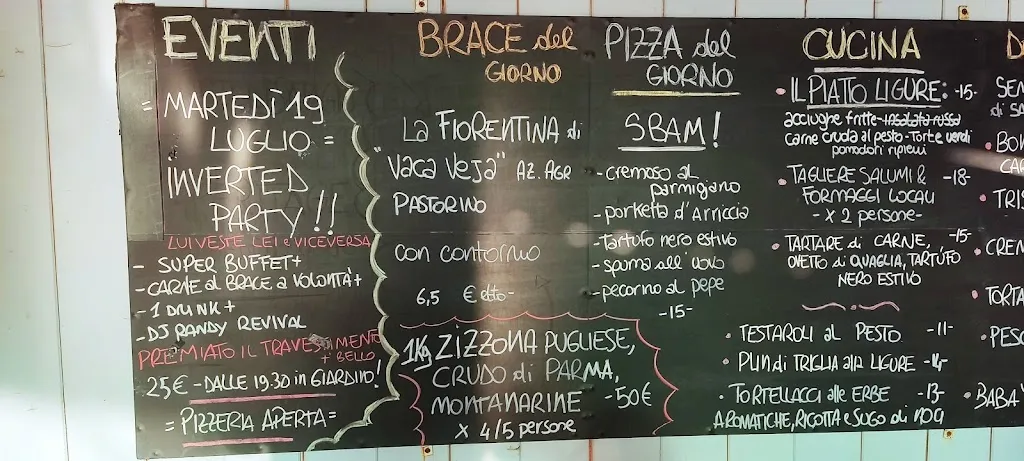 EVENTI
= MARTEDÌ 19
LUGLIO =
INVERTED
PARTY !!
LUI VESTE LEI e VICEVERSA
- SUPER BUFFET+
- CARNE al BRACE a VOLONTÀ+
- 1 DRINK +
- DJ RANDY REVIVAL
PREMIATO IL TRAVESTIMENTO
+ BELLO
25€ - DALLE 19.30 in GIARDINO!
= PIZZERIA APERTA =
BRACE del
GIORNO
La FIORENTINA di
"Vaca Veja" AZ. AGR
PASTORINO
con contorno
6,5 € etto-
1Kg ZIZZONA PUGLIESE,
CRUDO di PARMA,
MONTANARINE -50€
x 4/5 persone
PIZZA del
GIORNO
SBAM!
- cremoso al
parmigiano
- porketta d'Arriccia
- tartufo nero estivo
- spuma all'uovo
- pecorino al pepe
-15-
CUCINA
• IL PIATTO LIGURE: -15-
acciughe fritte - insalata russa
carne cruda al pesto - Torte verdi
pomodori ripieni
• TAGLIERE SALUMI & -18-
FORMAGGI LOCALI
- x 2 persone -
• TARTARE di CARNE, -15-
OVETTO di QUAGLIA, TARTUFO
NERO ESTIVO
• TESTAROLI al PESTO -11-
• PLIN di TRIGLIA alla LIGURE
• TORTELLACCI alle ERBE -13-
AROMATICHE, RICOTTA e SUGO di NOCI
D
SEM
di s
• BON
CA
• TRIS
• CREM
• TORTA
• PESC
• BABA